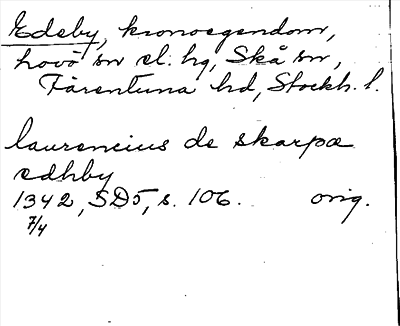 Edeby, kronoegendom,
hovö sn el. hg, Skå sn,
Färentuna hd, Stockh. l.
laurencius de skarpa
edhby
1342, SD5, s. 106. orig.
7/4